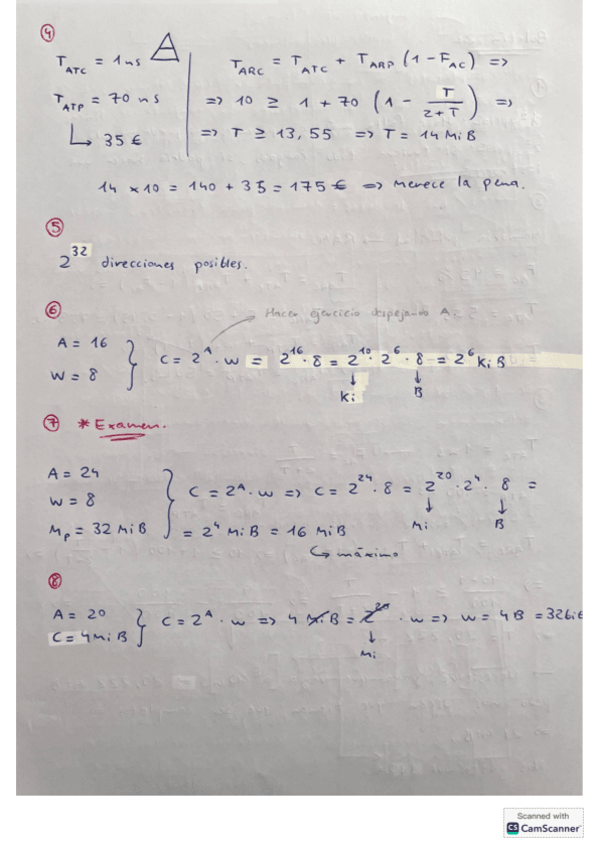 4
T_ATC = 1 ns
T_ARC = T_ATC + T_ARP (1 - F_AC) =>
T_ATP = 70 ns
=> 10 ≥ 1 + 70 (1 - T/(2+T)) =>
↳ 35 €
=> T ≥ 13,55 => T = 14 MiB
14 x 10 = 140 + 35 = 175 € => Merece la pena.
5
2^32 direcciones posibles.
6
Hacer ejercicio despejando A.
A = 16
W = 8
C = 2^A · W = 2^16 · 8 = 2^10 · 2^6 · 8 = 2^6 KiB
Ki B
7 * Examen.
A = 24
W = 8
C = 2^A · W => C = 2^24 · 8 = 2^20 · 2^4 · 8 =
Mi B
M_P = 32 MiB
= 2^4 MiB = 16 MiB
↳ máximo
8
A = 20
C = 4MiB
C = 2^A · W => 4 MiB = 2^20 · W => W = 4B = 32bit
Mi
Scanned with
CS CamScanner